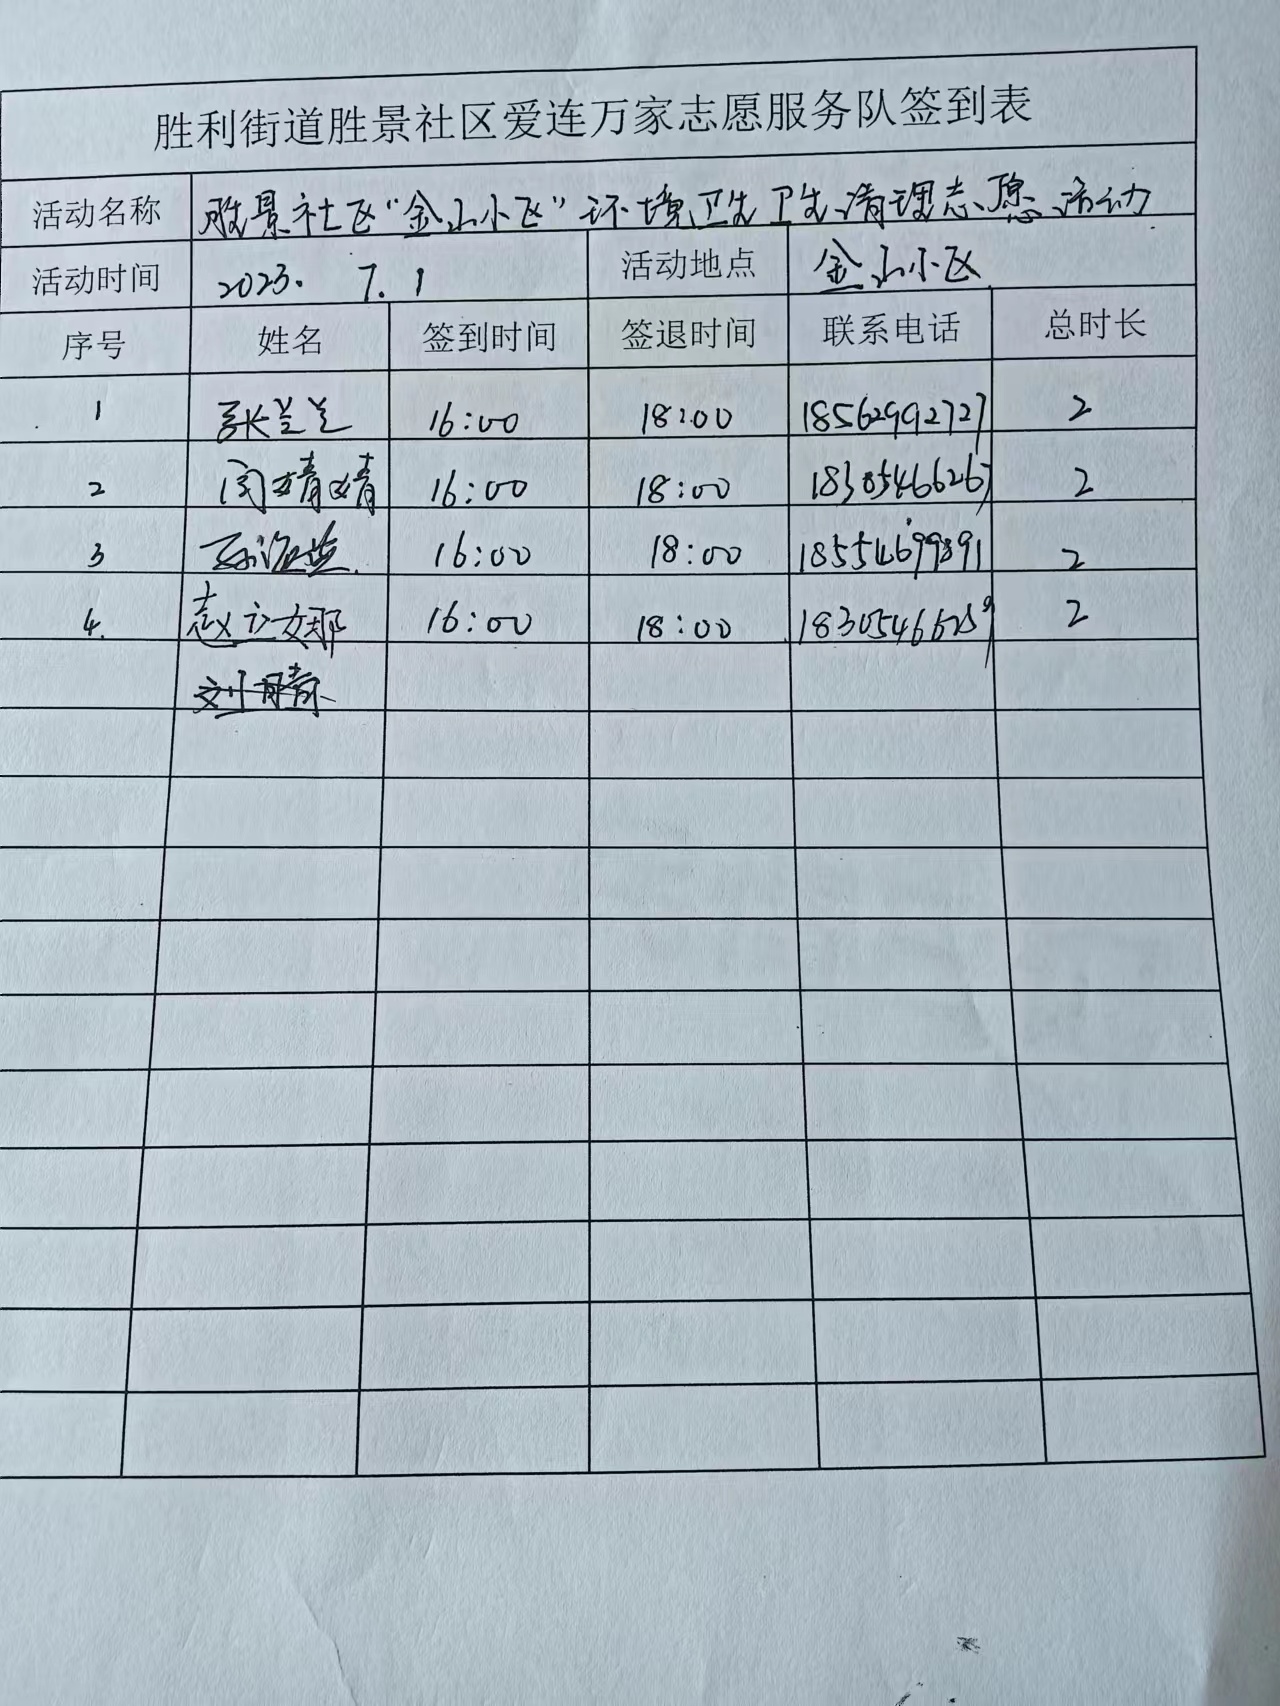 胜利街道胜景社区爱连万家志愿服务队签到表
活动名称 胜景社区“金山小区”环境卫生卫生清理志愿活动
活动时间 2023. 7.1 活动地点 金山小区
序号 姓名 签到时间 签退时间 联系电话 总时长
1 张兰兰 16:00 18:00 18562992727 2
2 闫婧婧 16:00 18:00 18305466267 2
3 16:00 18:00 18554699891 2
4. 赵立娜 16:00 18:00 2